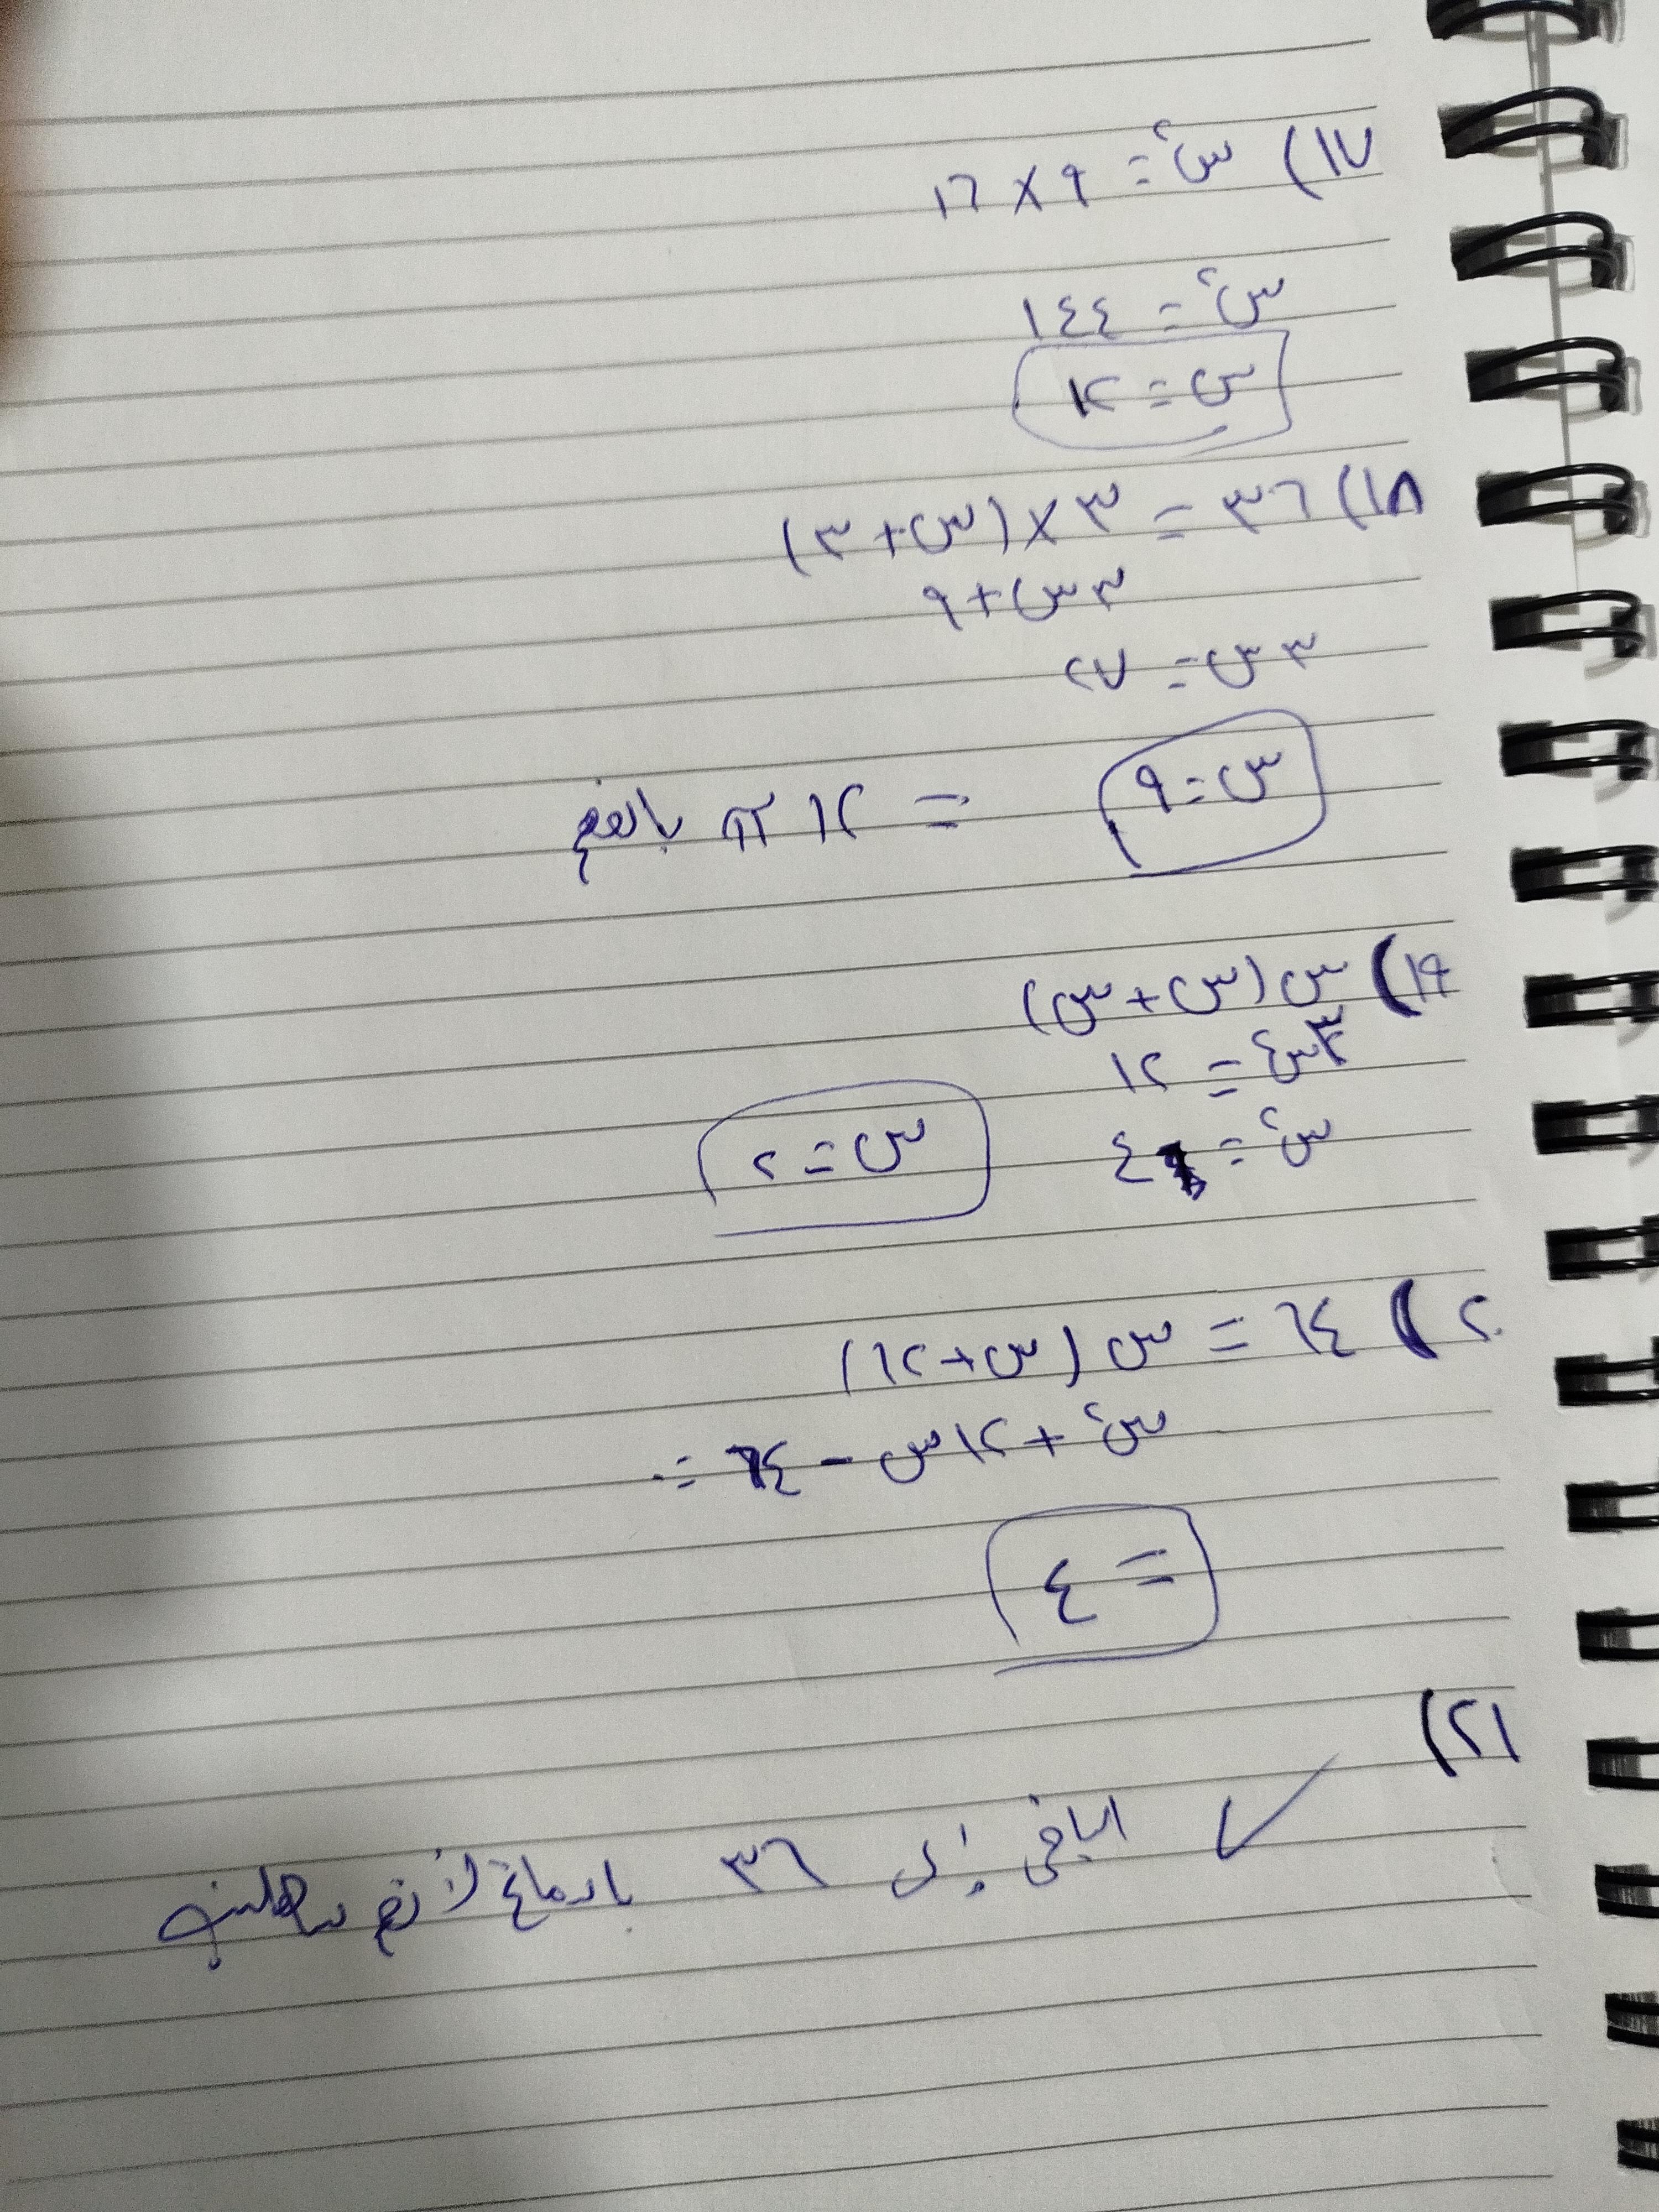 ١٧) س٢ = ٩ × ١٦
س٢ = ١٤٤
س = ١٢
١٨) ٣٦ = ٣ × (س + ٣)
٣س + ٩
٣س = ٢٧
س = ٩ = ١٢ π
١٩) س (س + س)
٣س٢ = ١٢
س٢ = ٤ س = ٢
٢٠) ٦٤ = س (س + ١٢)
س٢ + ١٢س - ٦٤ = ٠
= ٤
٢١)
✓ الباقي إلى ٣٦ بالدماغ لأنهم ساهلين